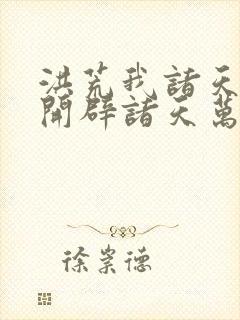 洪荒我諸天
開辟諸天萬
徐崇德